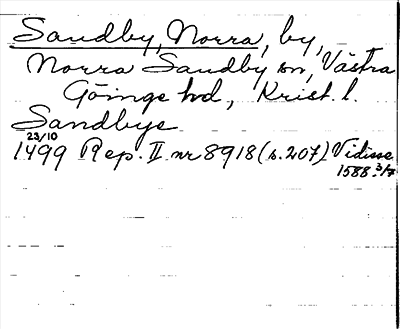 Sandby, Norra, by,
Norra Sandby sn, Västra
Göinge hd, Krist. l.
Sandbye
23/10
1499 Rep. II nr 8918 (s. 207) Vidisse
1588 3/7